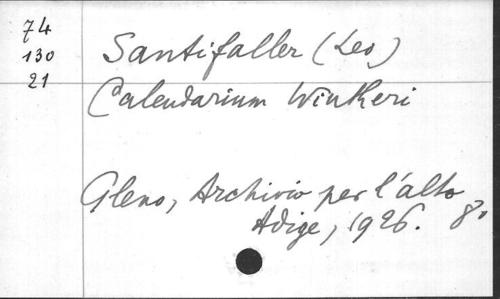 74
130
21
Santifaller (Leo)
Calendarium Winkeri
Gleno, Archivio per l'alto
Adige, 1926. 8°